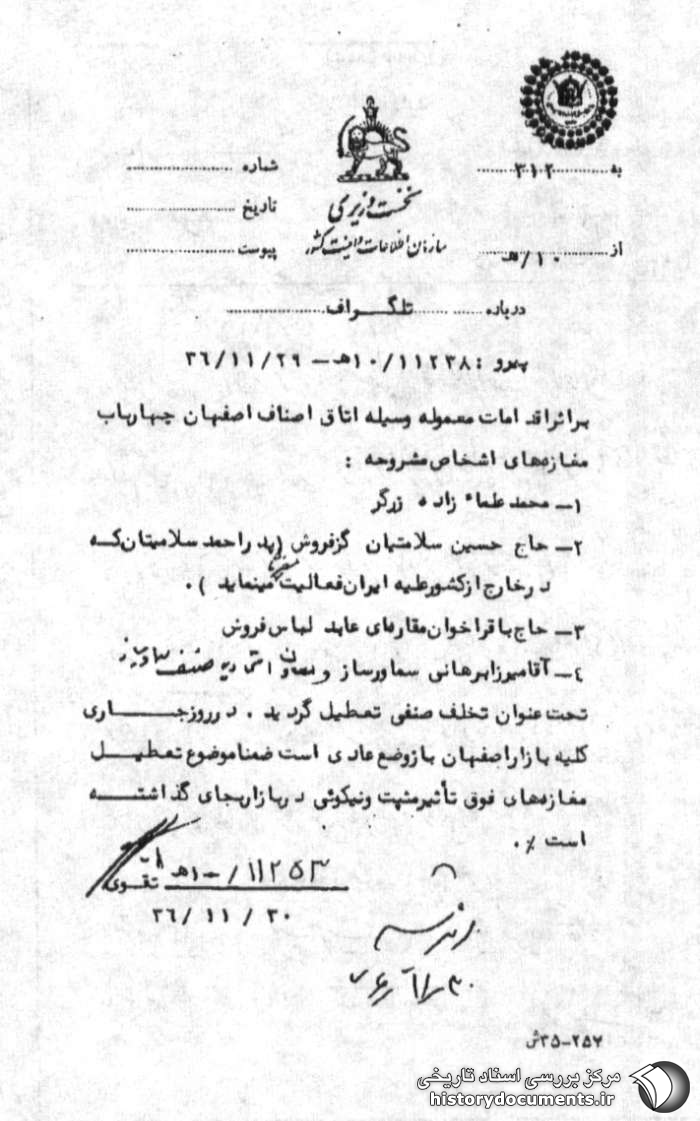 به ۳۱۲
شماره
نخست وزیری
تاریخ
سازمان اطلاعات و امنیت کشور
از ۱۰/هـ
پیوست
درباره تلگراف
پیرو : ۱۰/۱۱۲۳۸هـ – ۳۶/۱۱/۲۹
براثر اقدامات معموله وسیله اتاق اصناف اصفهان چهارباب
مغازه‌های اشخاص مشروحه :
۱– محمد علماء زاده زرگر
۲– حاج حسین سلامتیان گزفروش (پدر احمد سلامتیان که
در خارج از کشور علیه ایران فعالیت مینماید ) .
۳– حاج باقر اخوان مقاره‌ای عابد لباس فروش
۴– آقا میرزا برهانی سماورساز و معاون اتحادیه صنف سماورساز
تحت عنوان تخلف صنفی تعطیل گردید . در روز جاری
کلیه بازار اصفهان باز وضع عادی است ضمنا موضوع تعطیل
مغازه‌های فوق تأثیر مثبت و نیکوئی در بازار بجای گذاشته
است ٪ .
۱۱۲۵۳/۱۰هـ تقوی
۳۶/۱۱/۳۰
۳۵–۲۵۷ش
مرکز بررسی اسناد تاریخی
historydocuments.ir